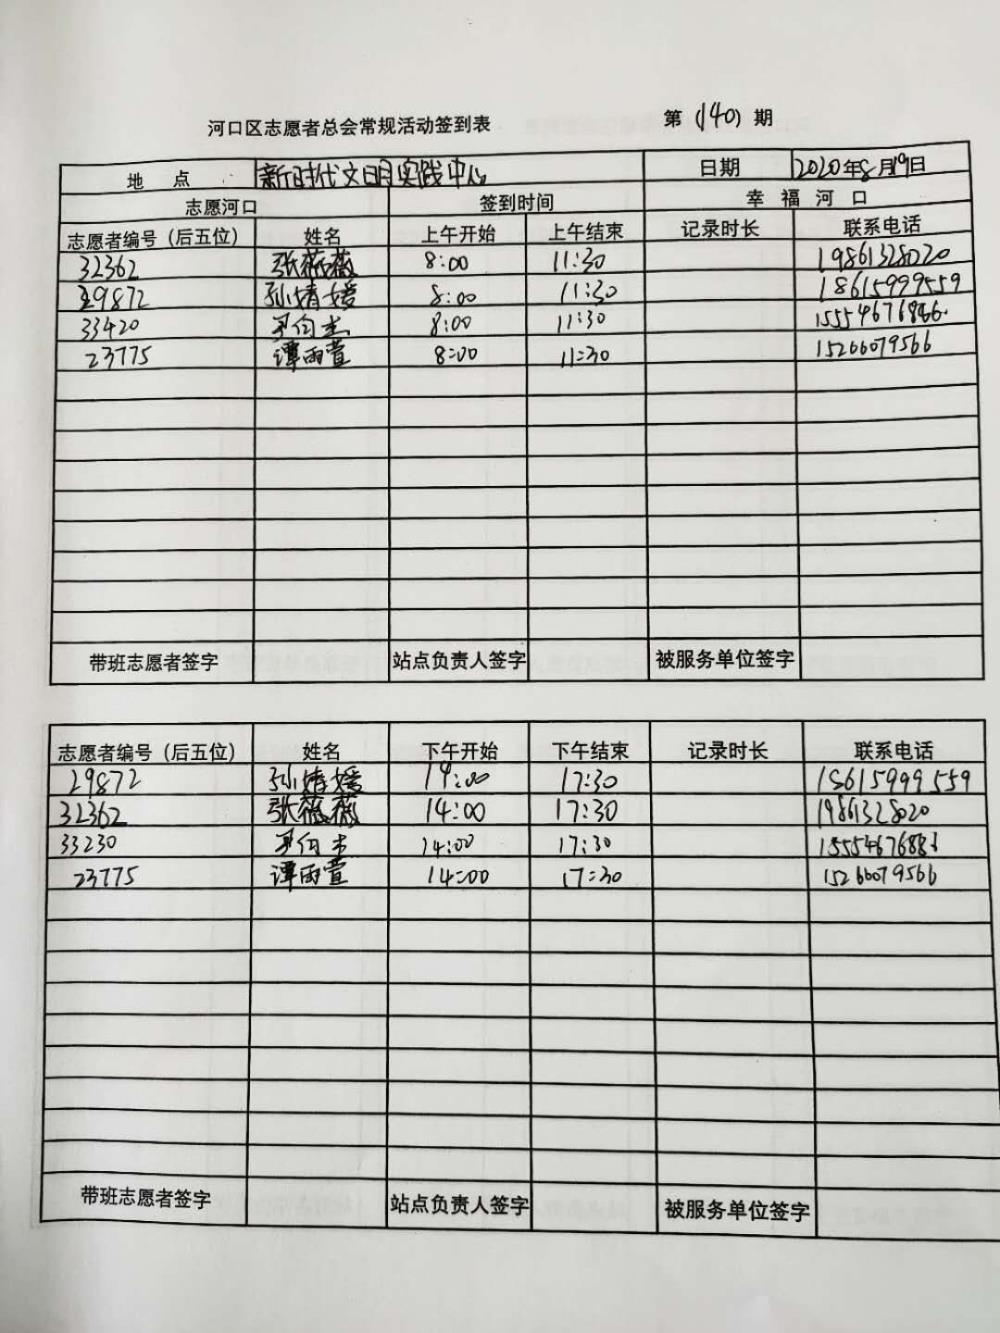 河口区志愿者总会常规活动签到表 第(140)期
地 点 新时代文明实践中心 日期 2020年8月19日
志愿河口 签到时间 幸福河口
志愿者编号（后五位） 姓名 上午开始 上午结束 记录时长 联系电话
32362 张薇薇 8:00 11:30 19861328020
29872 孙婧媛 8:00 11:30 18615999559
33420 8:00 11:30
23775 谭雨萱 8:00 11:30 15266079566
带班志愿者签字 站点负责人签字 被服务单位签字
志愿者编号（后五位） 姓名 下午开始 下午结束 记录时长 联系电话
29872 孙婧媛 14:00 17:30 18615999559
32362 张薇薇 14:00 17:30 19861328020
33230 14:00 17:30 15554676886
23775 谭雨萱 14:00 17:30 15266079566
带班志愿者签字 站点负责人签字 被服务单位签字